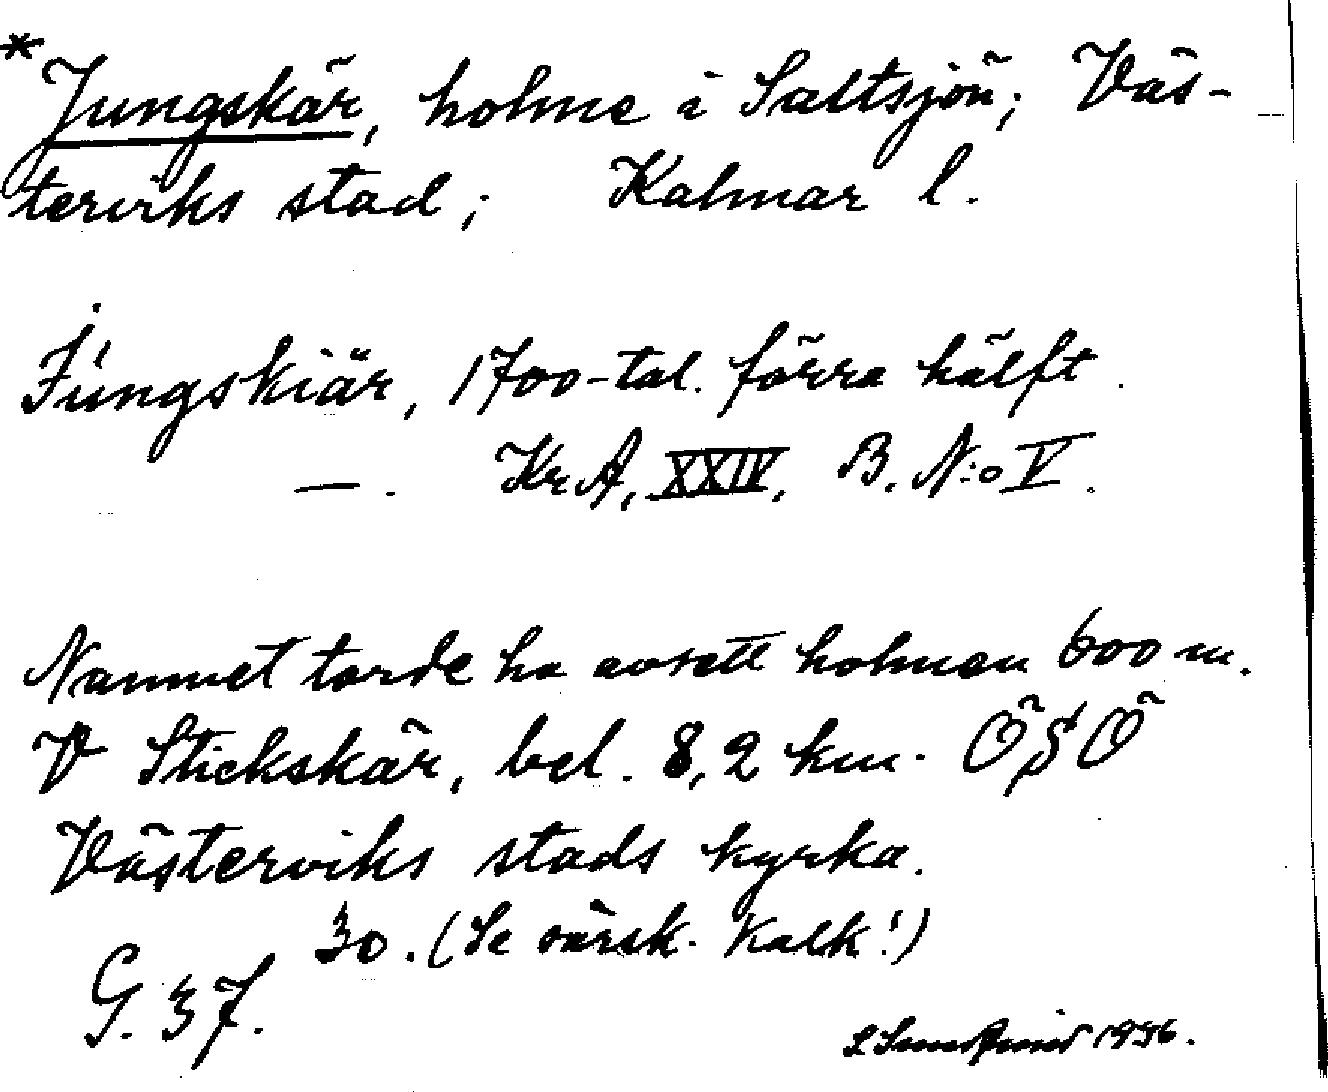 * Jungskär, holme i Saltsjön; Väs-
terviks stad; Kalmar l.
Jungskiär, 1700-tal. förra hälft.
—. Kr.A, XXIV, B. N:o V.
Namnet torde ha avsett holmen 600 m.
V Stickskär, bel. 8,2 km. ÖSÖ
Västerviks stads kyrka.
30. (Se särsk. kalk!)
G. 37.
1956.